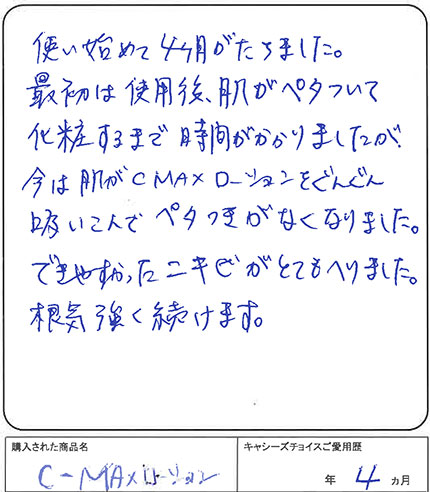 使い始めて4ヶ月がたちました。
最初は使用後、肌がペタついて
化粧するまで時間がかかりましたが、
今は肌がCMAXローションをぐんぐん
吸いこんでペタつきがなくなりました。
できやすかったニキビがとてもへりました。
根気強く続けます。
購入された商品名
キャシーズチョイスご愛用歴
C-MAXローション
年 4 ヵ月